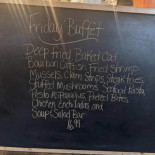 Friday Buffet
Deep Fried Baked Cod
Bourbon Fried Shrimps
Mussels, Clam Strips, Steak fries
Stuffed Mushrooms Seafood Pasta
Pretzel Bites
Chicken Enchiladas and
Soup & Salad Bar
16.99